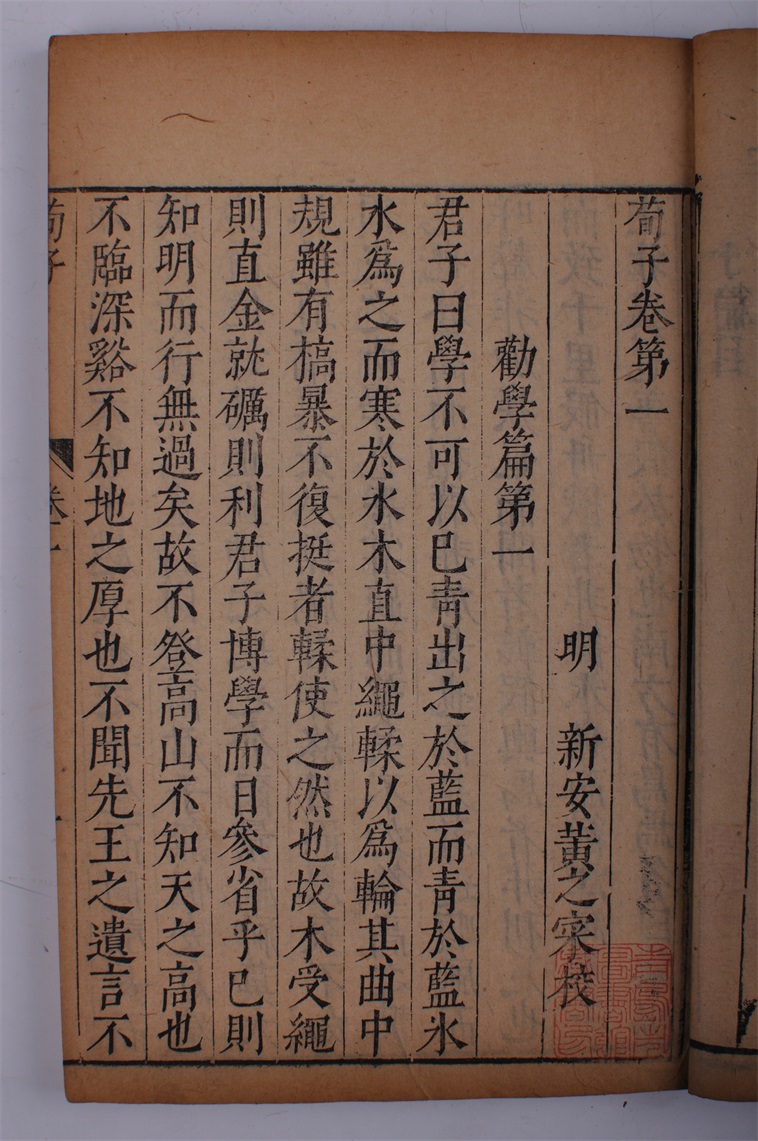 荀子卷第一
明　新安黃之寀校
勸學篇第一
君子曰學不可以已青出之於藍而青於藍氷
水為之而寒於水木直中繩輮以為輪其曲中
規雖有槁暴不復挺者輮使之然也故木受繩
則直金就礪則利君子博學而日參省乎已則
知明而行無過矣故不登高山不知天之高也
不臨深谿不知地之厚也不聞先王之遺言不
荀子
卷一